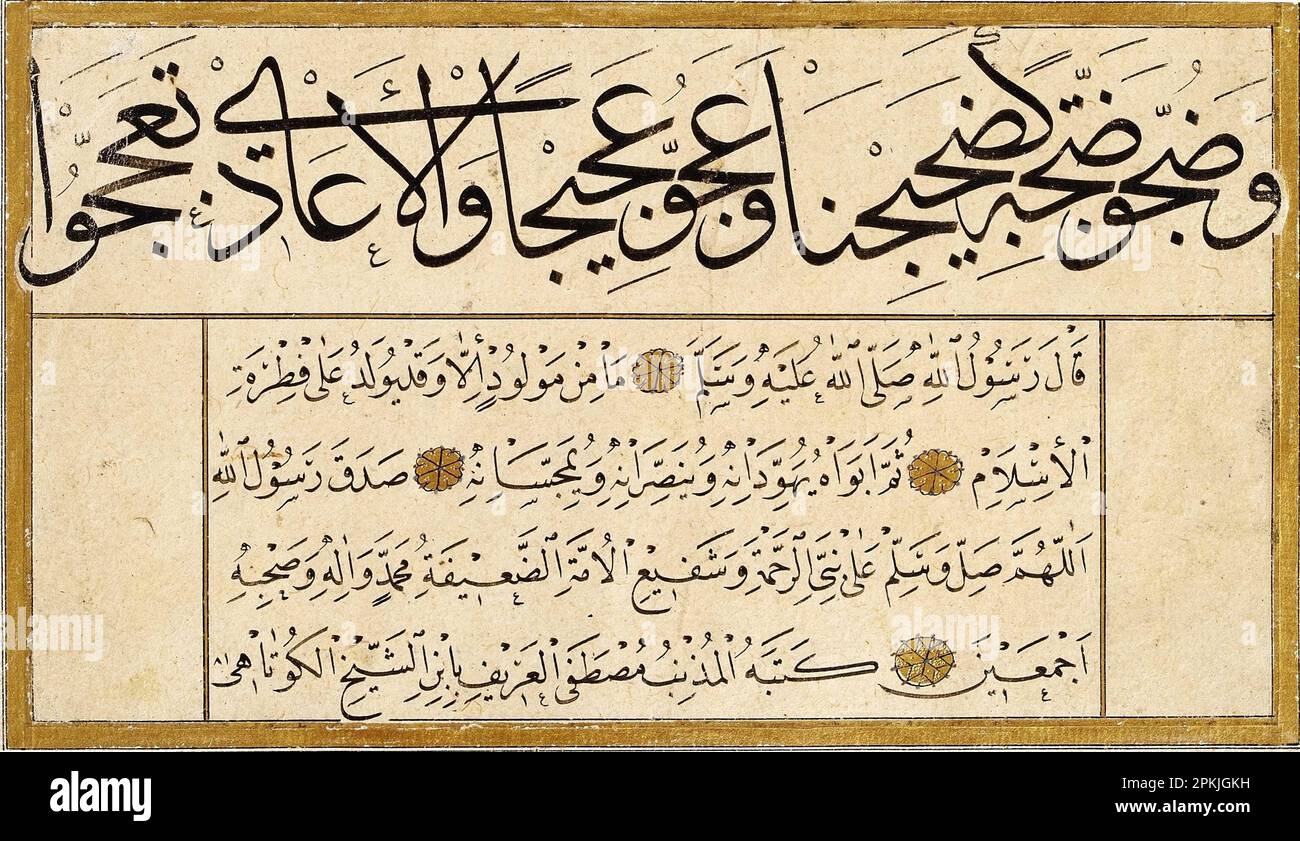 وَضَجُّوا ضَجَّةً كَضَجِيجِنَا وَعَجُّوا عَجِيجًا وَالْأَعَادِي تَعَجَّبُوا
قَالَ رَسُوْلُ اللّٰهِ صَلَّى اللّٰهُ عَلَيْهِ وَسَلَّمَ مَا مِنْ مَوْلُوْدٍ إِلَّا وَقَدْ يُولَدُ عَلٰى فِطْرَةِ
الْأِسْلَامِ ثُمَّ اَبَوَاهُ يُهَوِّدَانِهِ وَيُنَصِّرَانِهِ وَيُمَجِّسَانِهِ صَدَقَ رَسُوْلُ اللّٰهِ
اَللّٰهُمَّ صَلِّ وَسَلِّمْ عَلٰى نَبِيِّ الرَّحْمَةِ وَشَفِيْعِ الْاُمَّةِ الضَّعِيْفَةِ مُحَمَّدٍ وَاٰلِهِ وَصَحْبِهِ
اَجْمَعِيْنَ كَتَبَهُ الْمُذْنِبُ مُصْطَفَى الْعَرِيْفُ بِابْنِ الشَّيْخِ الْكُوتَاهِى
alamy
Image ID: 2PKJGKH
www.alamy.com